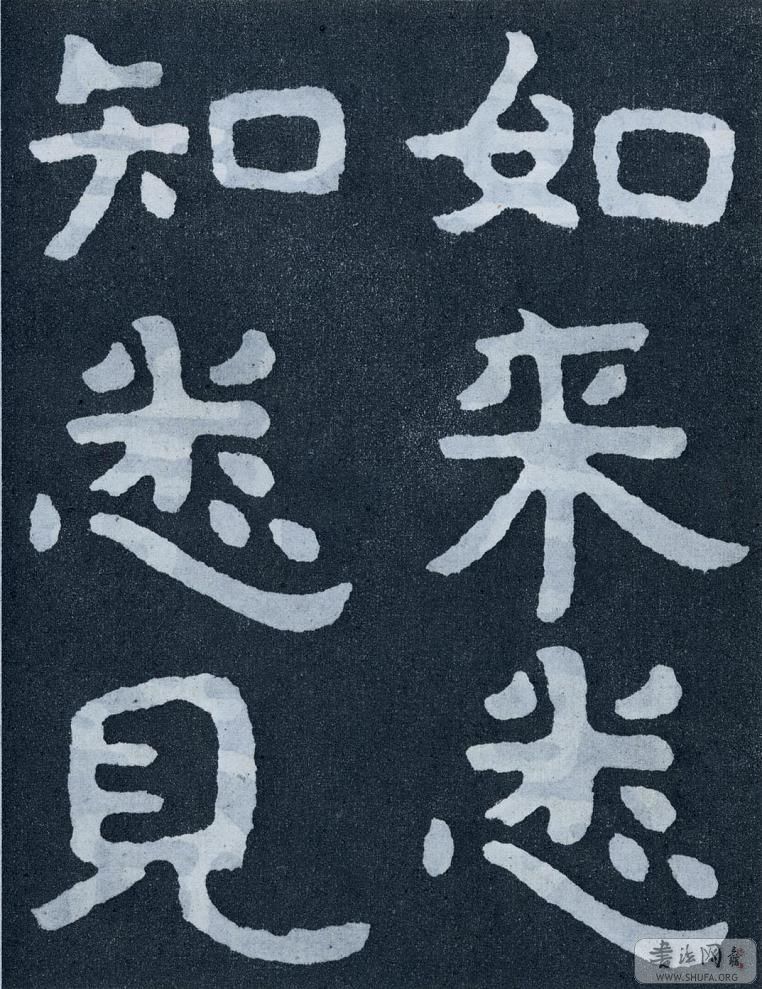 如来悉
知悉見
書法网
WWW.SHUFA.ORG